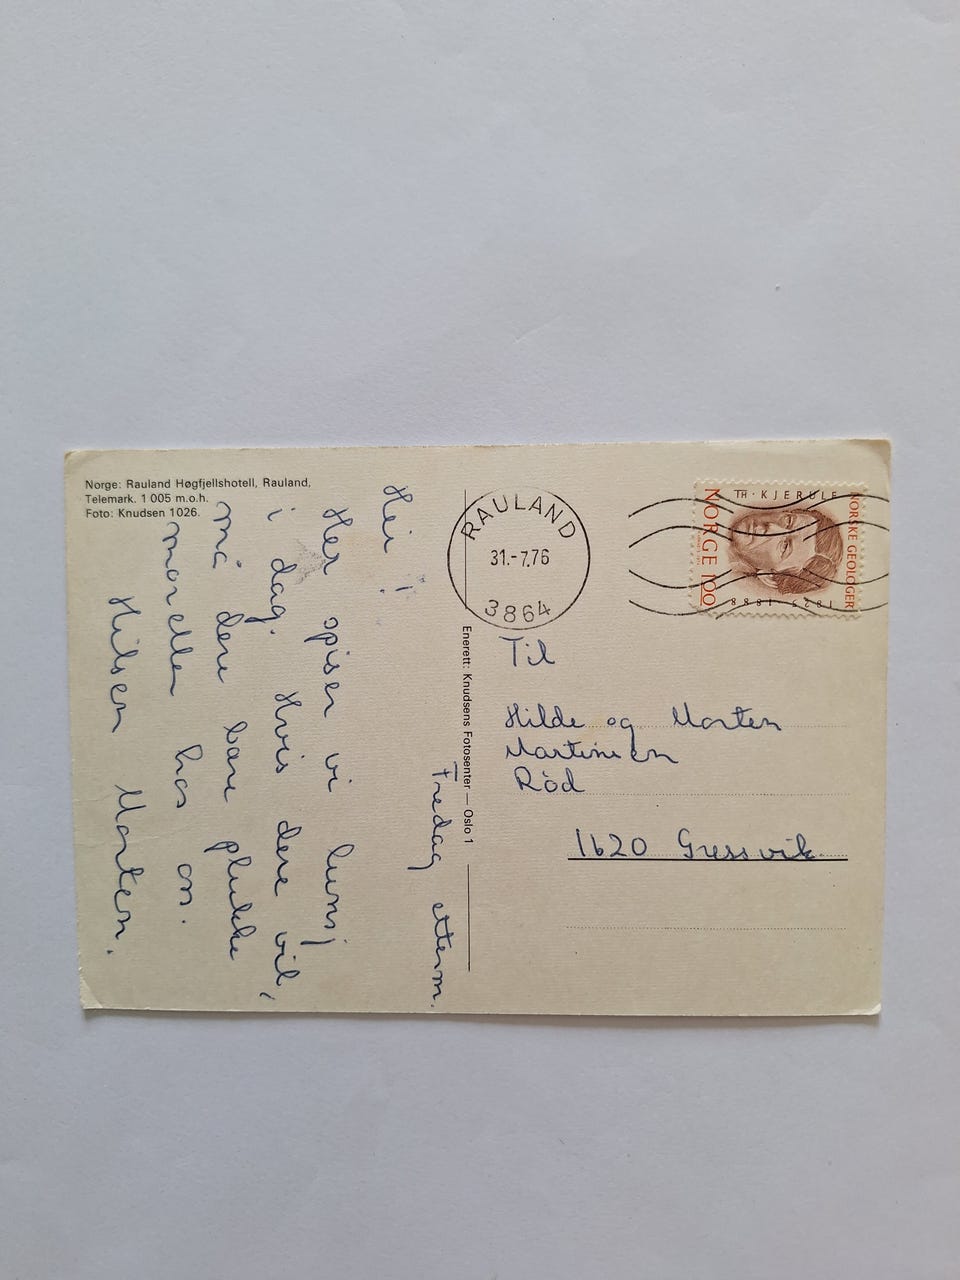 Norge: Rauland Høgfjellshotell, Rauland,
Telemark. 1 005 m.o.h.
Foto: Knudsen 1026.
Fredag etterm.
Hei!
Her spiser vi lunsj
i dag. Hvis dere vil,
må dere bare plukke
moreller hos oss.
Hilsen Morten.
Enerett: Knudsens Fotosenter — Oslo 1
RAULAND
31.-7.76
3864
NORGE 100
TH · KJERULF
1825-1888
NORSKE GEOLOGER
Til
Hilde og Morten
Martinsen
Röd
1620 Gressvik